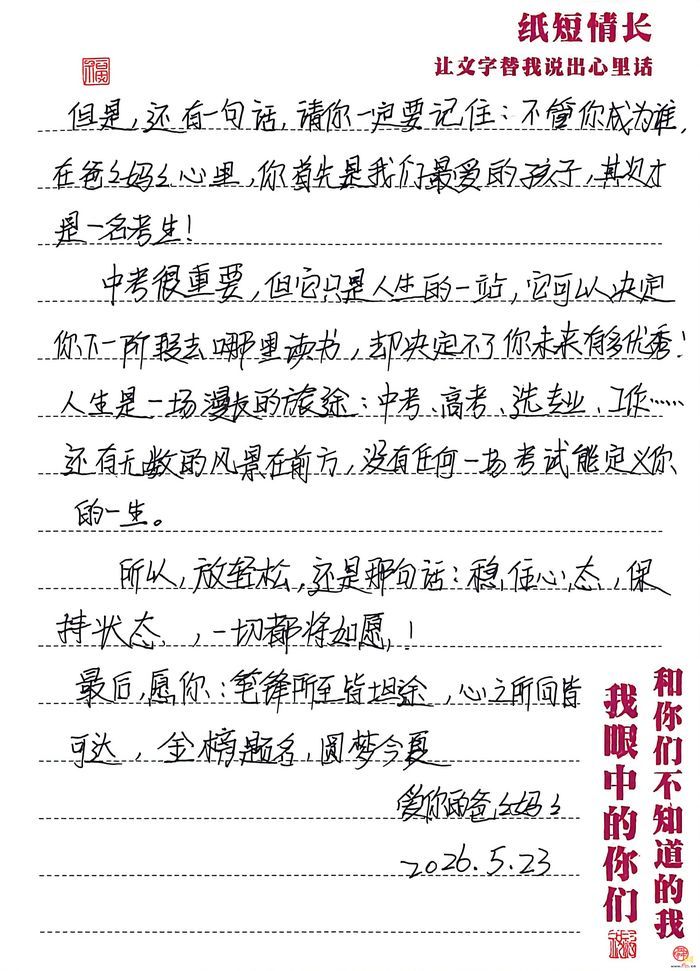 纸短情长
让文字替我说出心里话
福
但是,还有一句话,请你一定要记住:不管你成为谁,
在爸々妈々心里,你首先是我们最爱的孩子,其次才
是一名考生!
中考很重要,但它只是人生的一站,它可以决定
你下一阶段去哪里读书,却决定不了你未来有多优秀!
人生是一场漫长的旅途:中考、高考、选专业、工作……
还有无数的风景在前方,没有任何一场考试能定义你
的一生。
所以,放轻松,还是那句话:稳住心态,保
持状态,一切都将如愿!
最后,愿你:笔锋所至皆坦途,心之所向皆
可达,金榜题名,圆梦今夏
爱你的爸々妈々
2026.5.23
和你们不知道的我
我眼中的你们